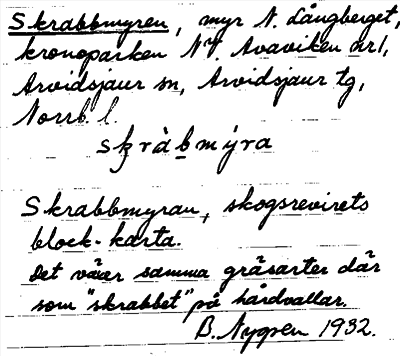 Skrabbmyren, myr N. Långberget,
kronoparken NV. Avaviken nr 1,
Arvidsjaur sn, Arvidsjaur tg,
Norrb. l.
skràbmýra
Skrabbmyran, skogsrevirets
block-karta.
Det växer samma gräsarter där
som "skrabbet" på hårdvallar.
B. Nygren 1932.